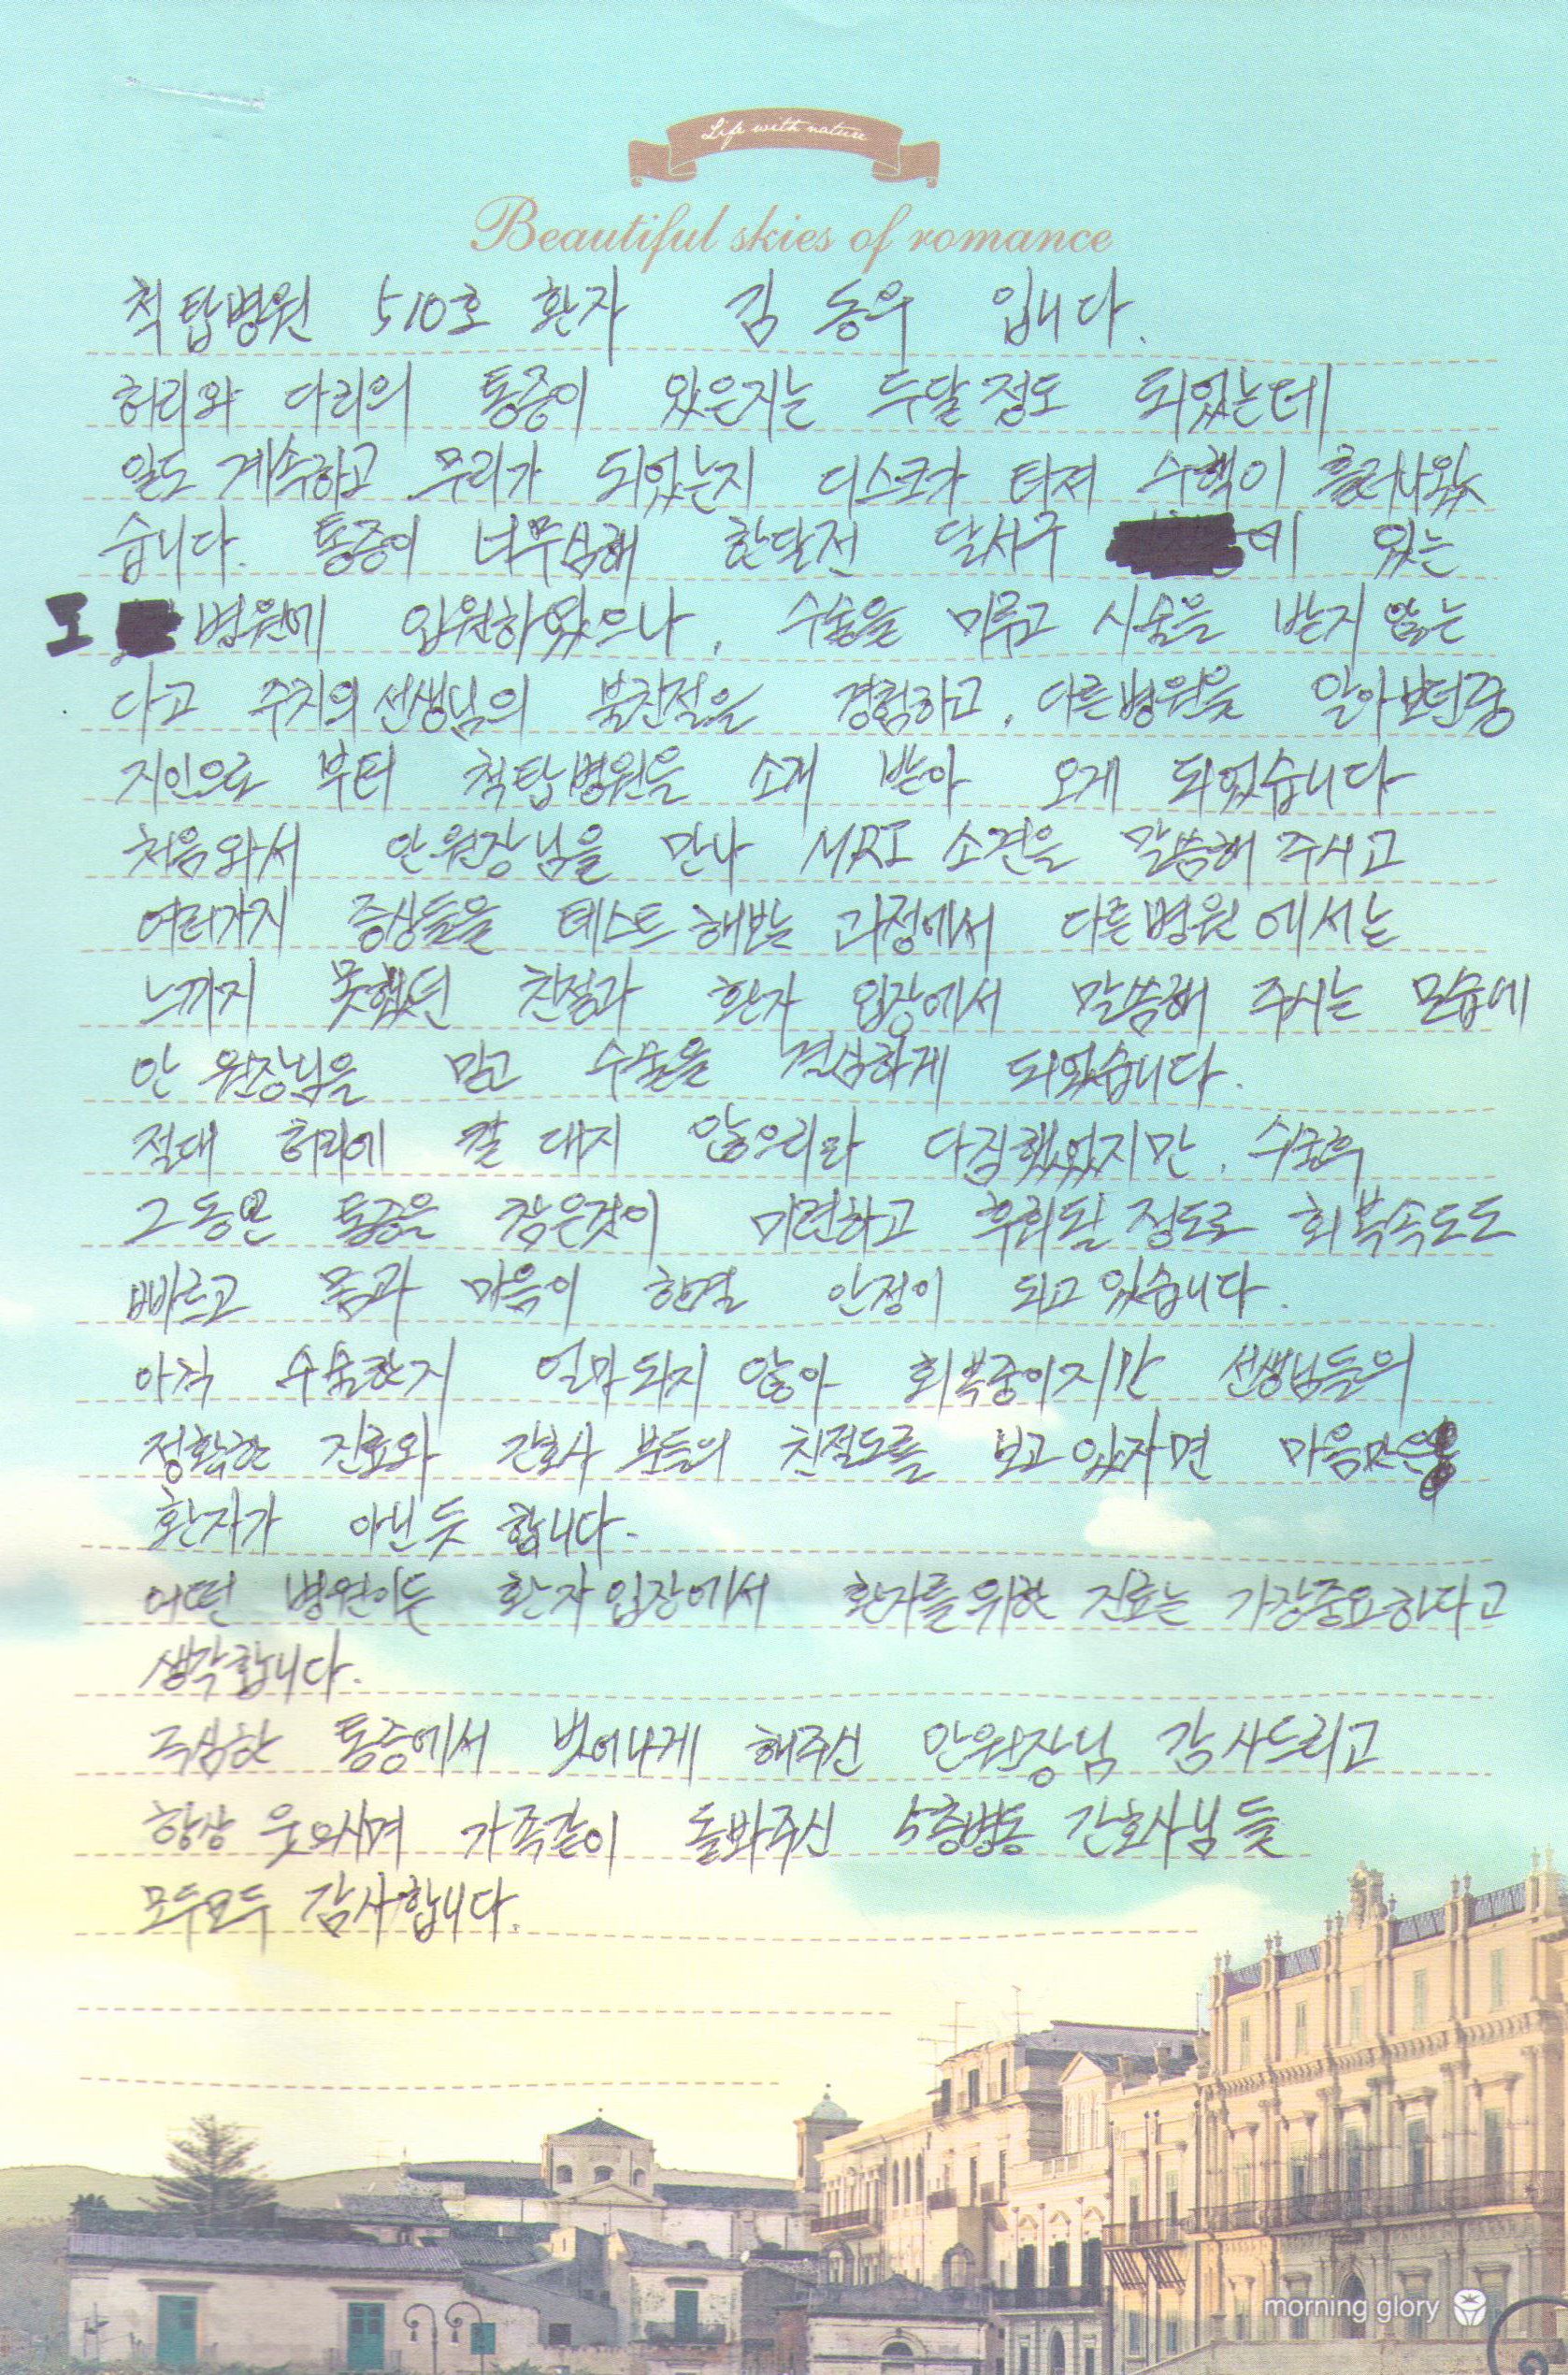 Life with nature
Beautiful skies of romance
척탑병원 510호 환자 김 동우 입니다.
허리와 다리의 통증이 있은지는 두달정도 되었는데
일도 계속하고 무리가 되었는지 디스크가 터져 수핵이 흘러나왔
습니다. 통증이 너무심해 한달전 달서구 에 있는
모 병원에 입원하였으나, 수술을 미루고 시술을 받지 않는
다고 주치의 선생님의 불친절을 경험하고, 다른병원을 알아보던중
지인으로 부터 척탑병원을 소개 받아 오게 되었습니다
처음와서 안원장님을 만나 MRI 소견을 말씀해 주시고
여러가지 증상들을 테스트 해보는 과정에서 다른병원 에서는
느끼지 못했던 친절과 환자 입장에서 말씀해 주시는 모습에
안 원장님을 믿고 수술을 결심하게 되었습니다.
절대 허리에 칼 대지 않으리라 다짐했었지만, 수술후
그동안 통증을 참은것이 미련하고 후회될 정도로 회복속도도
빠르고 몸과 마음이 한결 안정이 되고 있습니다.
아직 수술한지 얼마되지 않아 회복중이지만 선생님들의
정확한 진료와 간호사 분들의 친절도를 보고 있자면 마음만은
환자가 아닌듯 합니다.
어떤 병원이든 환자입장에서 환자를위한 진료는 가장중요하다고
생각합니다.
극심한 통증에서 벗어나게 해주신 안원장님 감사드리고
항상 웃으시며 가족같이 돌봐주신 5층병동 간호사님들
모두모두 감사합니다.
morning glory